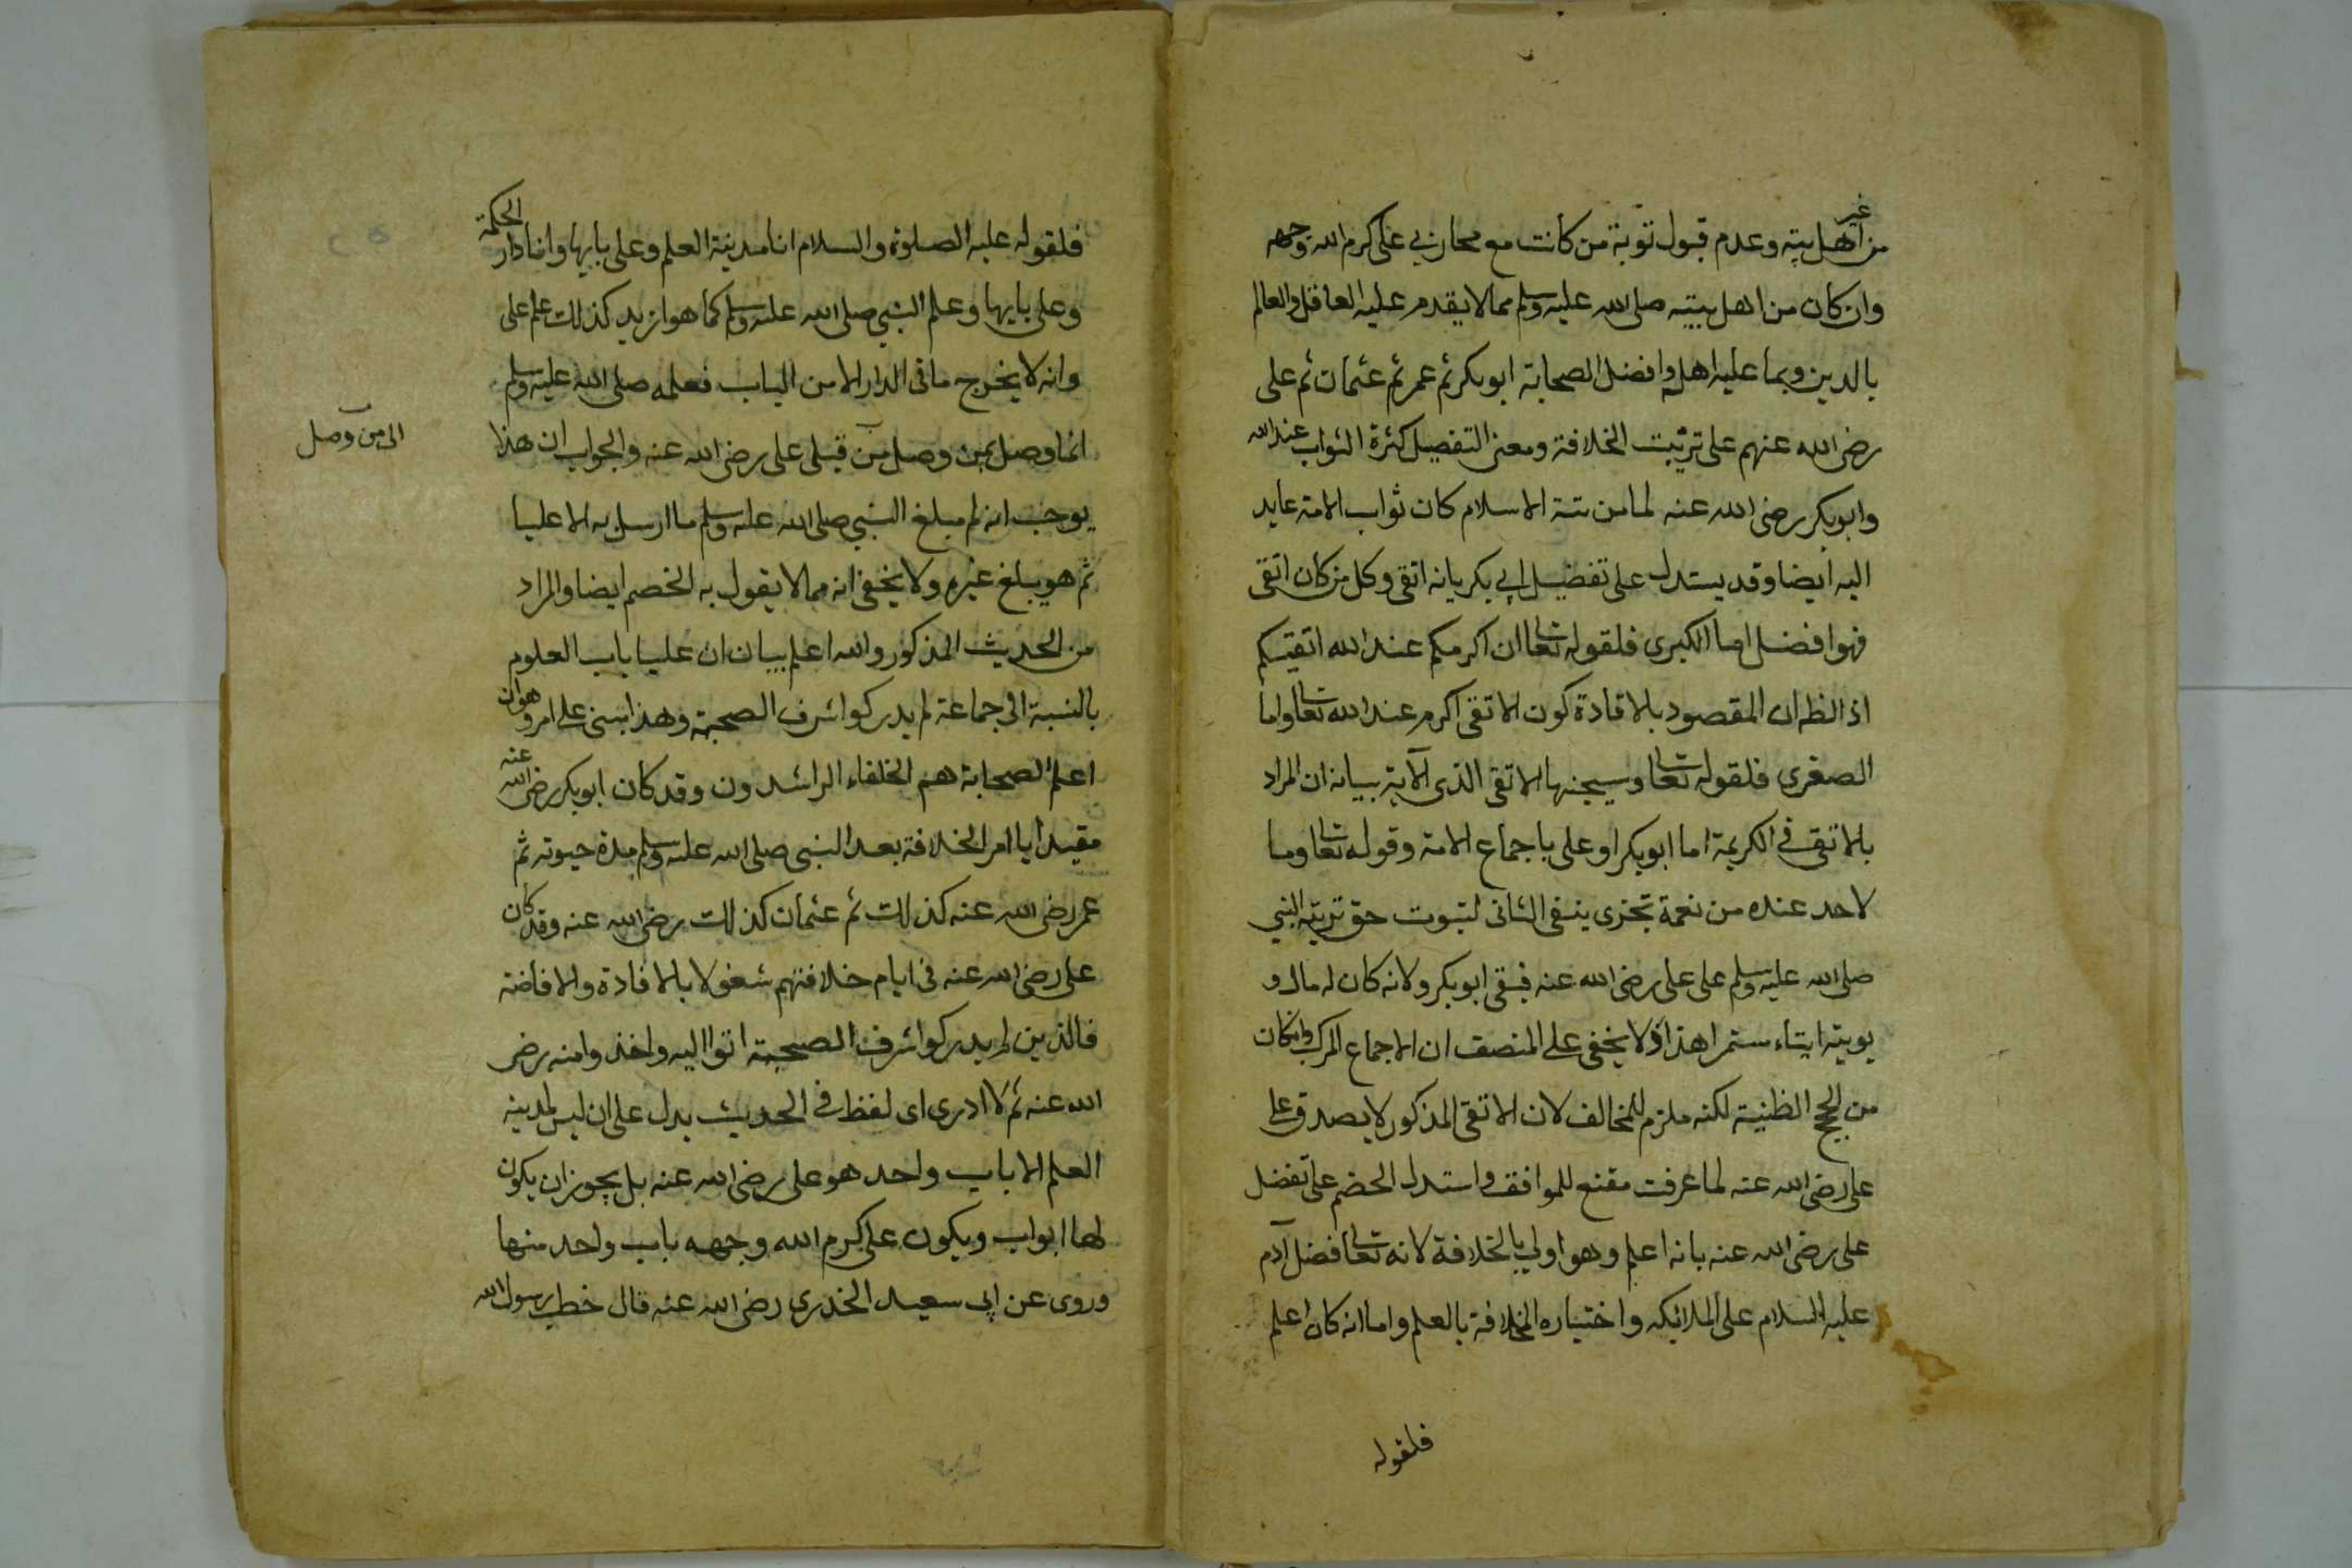 من غير اهل بيته وعدم قبول توبة من كانت مع محاربي على كرم الله وجهه
وان كان من اهل بيته صلى الله عليه وسلم مما لا يقدم عليه العاقل والعالم
بالدين وبما عليه اهله وافضل الصحابة ابو بكر ثم عمر ثم عثمان ثم على
رضى الله عنهم على ترتيب الخلافة ومعنى التفضيل كثرة الثواب عند الله
وابو بكر رضى الله عنه لما من سنة الاسلام كان ثواب الامة عايد
اليه ايضا وقد يستدل على تفضيل ابي بكر بانه اتقى وكل من كان اتقى
فهو افضل اما الكبرى فلقوله تعا ان اكرمكم عند الله اتقيكم
اذ الظ ان المقصود بالافادة كون الاتقى اكرم عند الله تعا واما
الصغرى فلقوله تعا وسيجنبها الاتقى الذى الآية بيانه ان المراد
بالاتقى في الكريمة اما ابو بكر او على باجماع الامة وقوله تعا وما
لاحد عنده من نعمة تجزى ينفى الثانى لثبوت حق تربية النبي
صلى الله عليه وسلم على على رضى الله عنه فبقى ابو بكر ولانه كان له مال و
يوتيه ايتاء مستمرا هذا ولا يخفى على المنصف ان الاجماع المركب وان كان
من الحجج الظنية لكنه ملزم للمخالف لان الاتقى المذكور لا يصدق على
على رضى الله عنه لما عرفت مقنع للموافق واستدل الخصم على تفضل
على رضى الله عنه بانه اعلم وهو اولى بالخلافة لانه تعا فضل آدم
عليه السلام على الملائكه واختياره الخلافة بالعلم واما انه كان اعلم
فلقوله
فلقوله عليه الصلوة والسلام انا مدينة العلم وعلى بابها وانا دار الحكمة
وعلى بابها وعلم النبي صلى الله عليه وسلم كما هو ازيد كذلك علم على
وانه لا يخرج ما فى الدار الا من الباب فعلمه صلى الله عليه وسلم
انما وصل بمن وصل من قبل على رضى الله عنه والجواب ان هذا
الى من وصل
يوجب انه لم يبلغ النبي صلى الله عليه وسلم ما ارسل به الا عليا
ثم هو يبلغ غيره ولا يخفى انه مما لا يقول به الخصم ايضا والمراد
من الحديث المذكور والله اعلم بيان ان عليا باب العلوم
بالنسبة الى جماعة لم يدركوا شرف الصحبة وهذا مبنى على امر وهو ان
اعلم الصحابة هم الخلفاء الراشدون وقد كان ابو بكر رضى الله عنه
مقيدا بامر الخلافة بعد النبى صلى الله عليه وسلم مدة حيوته ثم
عمر رضى الله عنه كذلك ثم عثمان كذلك رضى الله عنه وقد كان
على رضى الله عنه فى ايام خلافتهم شغولا بالافادة والافاضة
فالذين لم يدركوا شرف الصحبة اتوا اليه واخذوا منه رضى
الله عنه ثم لا ادرى اى لفظ في الحديث يدل على ان ليس لمدينة
العلم الا باب واحد هو على رضى الله عنه بل يجوز ان يكون
لها ابواب ويكون على كرم الله وجهه باب واحد منها
وروى عن ابى سعيد الخدرى رضى الله عنه قال خطب رسول الله